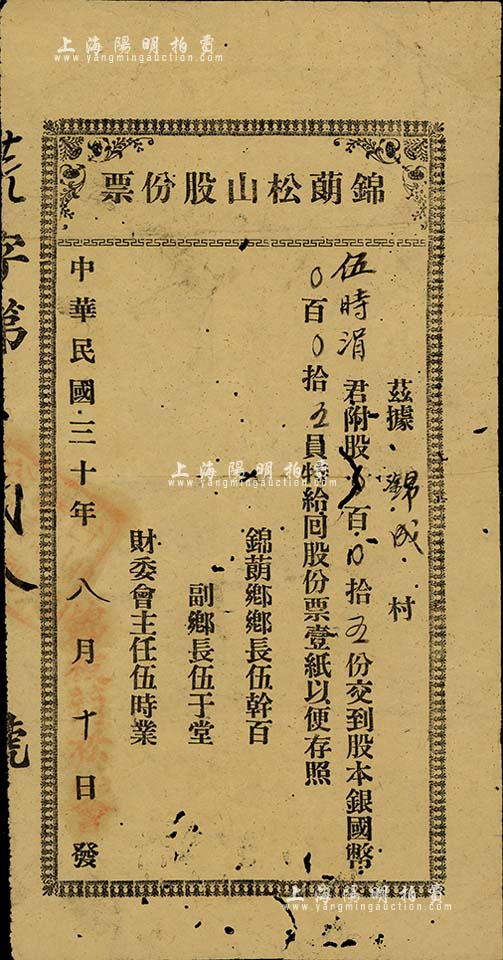 上海陽明拍賣
www.yangmingauction.com
錦蓢松山股份票
茲據錦成村
伍時涓君附股0百0拾五份交到股本銀國幣
0百0拾五員特給回股份票壹紙以便存照
錦蓢鄉鄉長伍幹百
副鄉長伍于堂
財委會主任伍時業
中華民國三十年八月十日發
字第
號
上海陽明拍賣
www.yangmingauction.com
上海陽明拍賣
www.yangmingauction.com